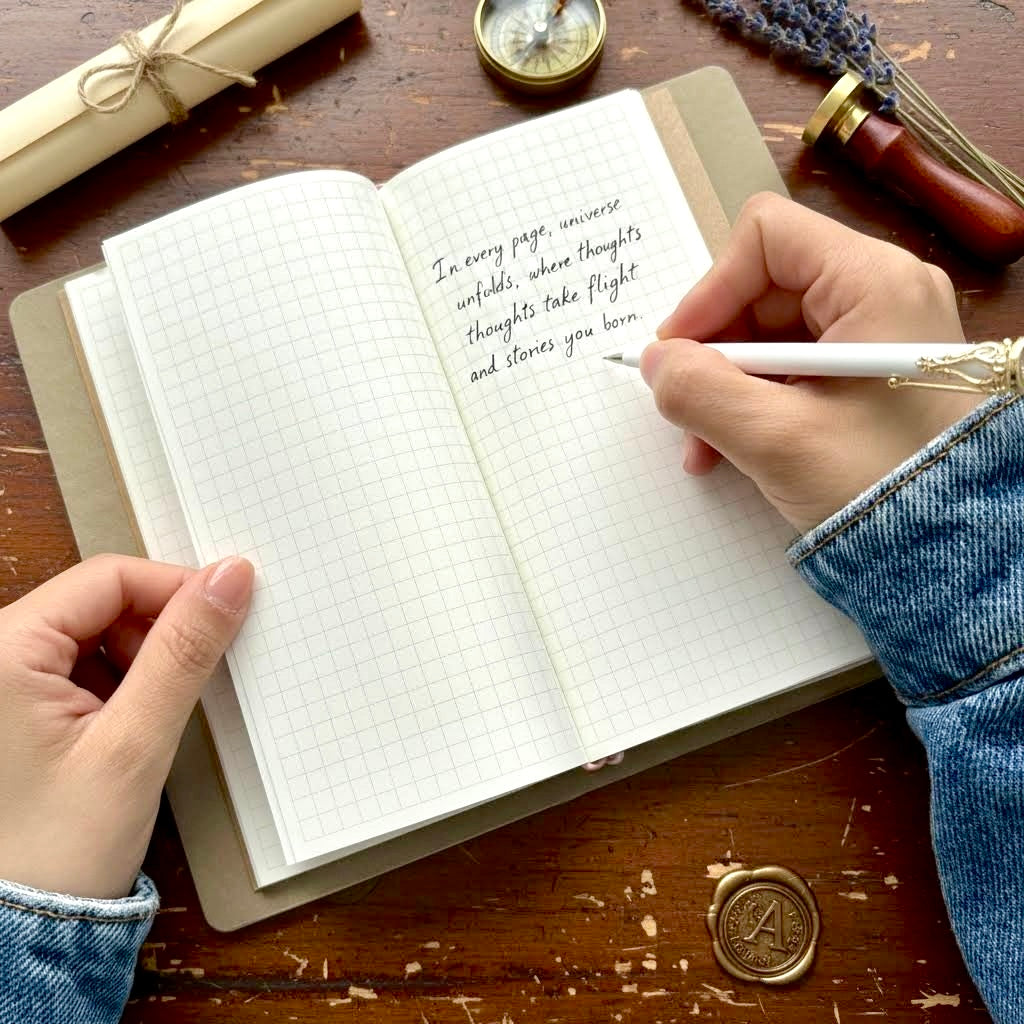 In every page, universe
unfolds, where thoughts
thoughts take flight
and stories you born.
A